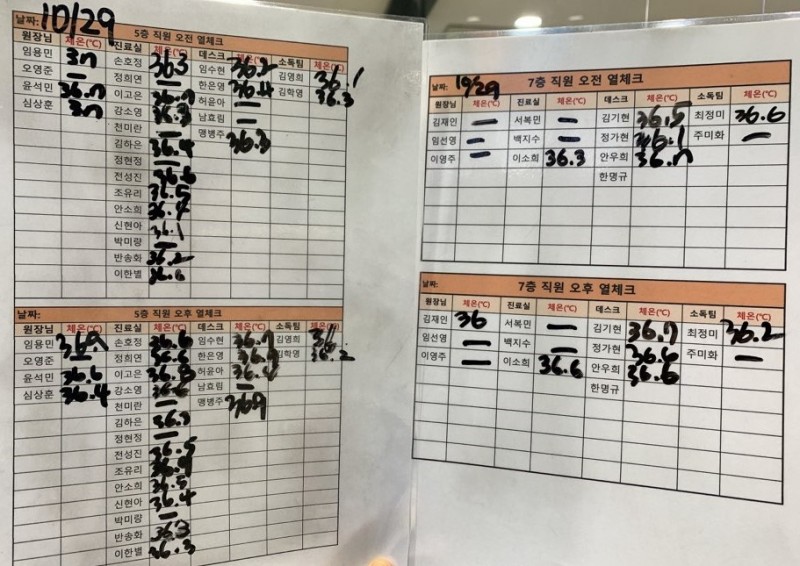 날짜: 10/29 5층 직원 오전 열체크
원장님 체온(℃) 진료실 체온(℃) 데스크 체온(℃) 소독팀 체온(℃)
임용민 손호정 36.3 임수현 36.2 김영희 36.1
오영준 — 정희연 — 한은영 36.4 김학영 36.3
윤석민 36.7 이고은 36.7 허윤아 —
심상훈 강소영 36.3 남효림 —
천미란 — 맹병주 36.3
김하은 36.4
정현정 —
전성진 36.6
조유리 36.5
안소희 36.7
신현아 36.1
박미량 —
반송화 36.2
이한별
날짜: 5층 직원 오후 열체크
원장님 체온(℃) 진료실 체온(℃) 데스크 체온(℃) 소독팀 체온(℃)
임용민 손호정 36.6 임수현 36.7 김영희
오영준 — 정희연 36.6 한은영 김학영 36.2
윤석민 36.6 이고은 36.8 허윤아
심상훈 36.4 강소영 36.6 남효림 —
천미란 — 맹병주
김하은
정현정 —
전성진 36.5
조유리
안소희 36.5
신현아 36.4
박미량 —
반송화 36.3
이한별 36.3
날짜: 10/29 7층 직원 오전 열체크
원장님 체온(℃) 진료실 체온(℃) 데스크 체온(℃) 소독팀 체온(℃)
김재인 — 서복민 — 김기현 36.5 최정미 36.6
임선영 — 백지수 — 정가현 36.1 주미화 —
이영주 — 이소희 36.3 안우희 36.7
한명규
날짜: 7층 직원 오후 열체크
원장님 체온(℃) 진료실 체온(℃) 데스크 체온(℃) 소독팀 체온(℃)
김재인 36 서복민 — 김기현 36.7 최정미 36.2
임선영 — 백지수 — 정가현 36.6 주미화 —
이영주 — 이소희 36.6 안우희 36.6
한명규